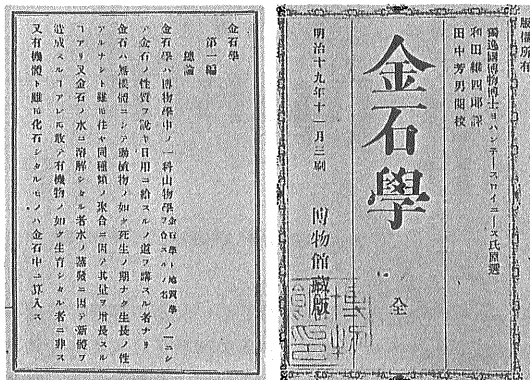 版權所有
獨逸國博物博士ヨハン子ースロイニース氏原選
和田維四郎譯
田中芳男閲校
金石學
全
明治十九年十一月三刷
博物館藏版
金石學
第一編
總論
金石學ハ博物學中ノ一科山物學金石學ト地質學ヲ合スルノ名ノ一ニシ
テ金石ノ性質ヲ説キ日用ニ給スルノ道ヲ講スル者ナリ
金石ハ無機體ニシテ動植物ノ如ク死生ノ期ナク生長ノ性
アルナシト雖モ往々同種類ノ聚合ニ因テ其量ヲ增長スル
コアリ又金石ノ水ニ溶解シタル者水ノ蒸發ニ因テ新體ヲ
造成スルコアレ𪜈敢テ有機物ノ如ク生育シタル者ニ非ス
又有機體ト雖モ化石シタルモノハ金石中ニ算入ス